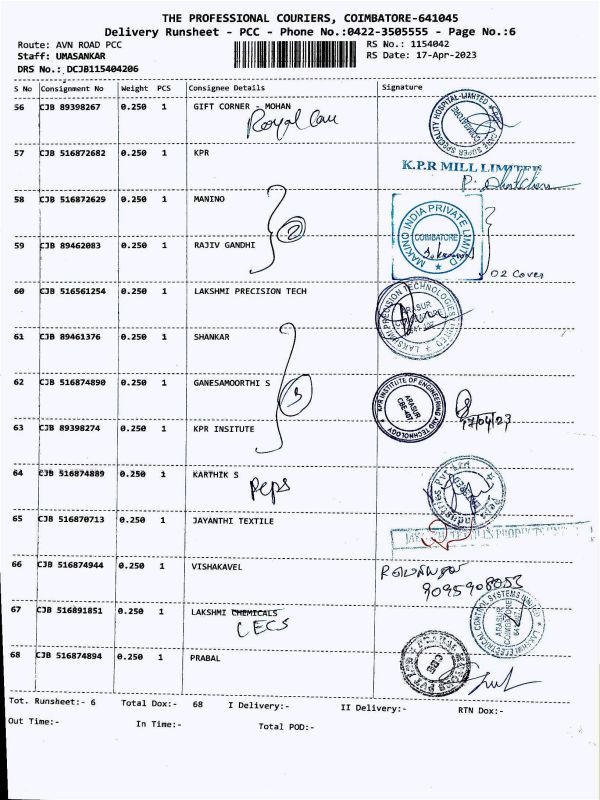 THE PROFESSIONAL COURIERS, COIMBATORE-641045
Delivery Runsheet - PCC - Phone No.:0422-3505555 - Page No.:6
Route: AVN ROAD PCC
RS No.: 1154042
Staff: UMASANKAR
RS Date: 17-Apr-2023
DRS No.: DCJB115404206
S No Consignment No Weight PCS Consignee Details Signature
56 CJB 89398267 0.250 1 GIFT CORNER - MOHAN
Royal Care
57 CJB 516872682 0.250 1 KPR
K.P.R MILL LIMITED
58 CJB 516872629 0.250 1 MANINO
2
MAKINO INDIA PRIVATE LIMITED
COIMBATORE
59 CJB 89462083 0.250 1 RAJIV GANDHI
02 Cover
60 CJB 516561254 0.250 1 LAKSHMI PRECISION TECH
LAKSHMI PRECISION TECHNOLOGIES LIMITED
ARASUR
61 CJB 89461376 0.250 1 SHANKAR
62 CJB 516874890 0.250 1 GANESAMOORTHI S
3
KPR INSTITUTE OF ENGINEERING AND TECHNOLOGY
ARASUR
CBE-407
17/04/23
63 CJB 89398274 0.250 1 KPR INSITUTE
64 CJB 516874889 0.250 1 KARTHIK S
Peps
Peps Industries Pvt Ltd
65 CJB 516870713 0.250 1 JAYANTHI TEXTILE
TEXTILES PRODUCTS
66 CJB 516874944 0.250 1 VISHAKAVEL
9095908053
67 CJB 516891851 0.250 1 LAKSHMI CHEMICALS
LECS
LAKSHMI ELECTRICAL CONTROL SYSTEMS LIMITED
ARASUR
COIMBATORE
68 CJB 516874894 0.250 1 PRABAL
Tot. Runsheet:- 6 Total Dox:- 68 I Delivery:- II Delivery:- RTN Dox:-
Out Time:- In Time:- Total POD:-